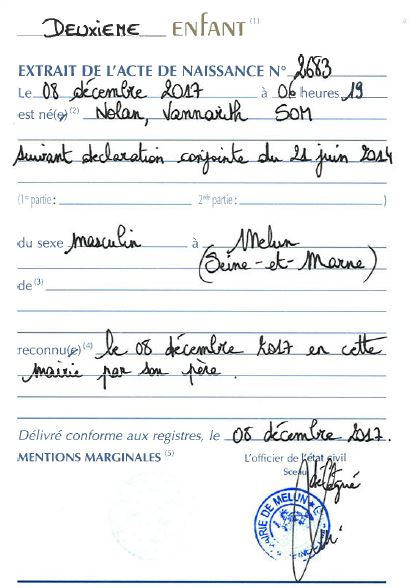 DEUXIEME ENFANT (1)
EXTRAIT DE L'ACTE DE NAISSANCE N° 2683
Le 08 décembre 2017 à 06 heures 19
est né(e) (2) Nolan, Vannarith SOM
suivant declaration conjointe du 21 juin 2014
(1re partie : 2nde partie : )
du sexe masculin à Melun
(Seine-et-Marne)
de (3)
reconnu(e) (4) le 08 décembre 2017 en cette
mairie par son père.
Délivré conforme aux registres, le 08 décembre 2017.
MENTIONS MARGINALES (5) L'officier de l'état civil
Sceau délégué
MAIRIE DE MELUN